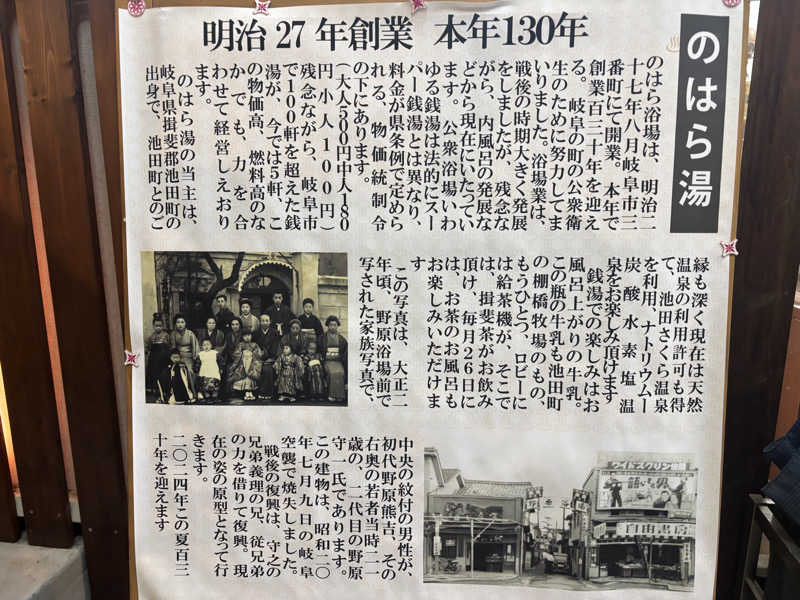 明治27年創業 本年130年
のはら湯
のはら浴場は、明治二
十七年八月岐阜市三
番町にて開業。本年で
創業百三十年を迎え
る。岐阜の町の公衆衛
生のために努力してま
いりました。浴場業は、
戦後の時期大きく発展
をしましたが、残念な
がら、内風呂の発展な
どから現在にいたってい
ます。公衆浴場いわ
ゆる銭湯は法的にスー
パー銭湯とは異なり、
料金が県条例で定めら
れる、物価統制令
の下にあります。
(大人500円中人180
円小人100円)
残念ながら、岐阜市
で100軒を超えた銭
湯が、今では5軒、こ
の物価高、燃料高のな
かでも、力を合
わせて経営しえおり
ます。
のはら湯の当主は、
岐阜県揖斐郡池田町の
出身で、池田町とのご
縁も深く現在は天然
温泉の利用許可も得
て、池田さくら温泉
を利用、ナトリウムー
炭酸水素塩温
泉をお楽しみ頂けます
銭湯での楽しみはお
風呂上がりの牛乳。
この瓶の牛乳も池田町
の棚橋牧場のもの、
もうひとつ、ロビーに
は給茶機が、そこで
は、揖斐茶がお飲み
頂け、毎月26日に
は、お茶のお風呂も
お楽しみいただけま
す
この写真は、大正二
年頃、野原浴場前で
写された家族写真で、
中央の紋付の男性が、
初代野原熊吉、その
右奥の若者当時二一
歳の、二代目の野原
守一氏であります。
この建物は、昭和二〇
年七月九日の岐阜
空襲で焼失しました。
戦後の復興は、守之の
兄弟義理の兄、従兄弟
の力を借りて復興。現
在の姿の原型となって行
きます。
二〇二四年この夏百三
十年を迎えます
ワイドスクリン
自由書房